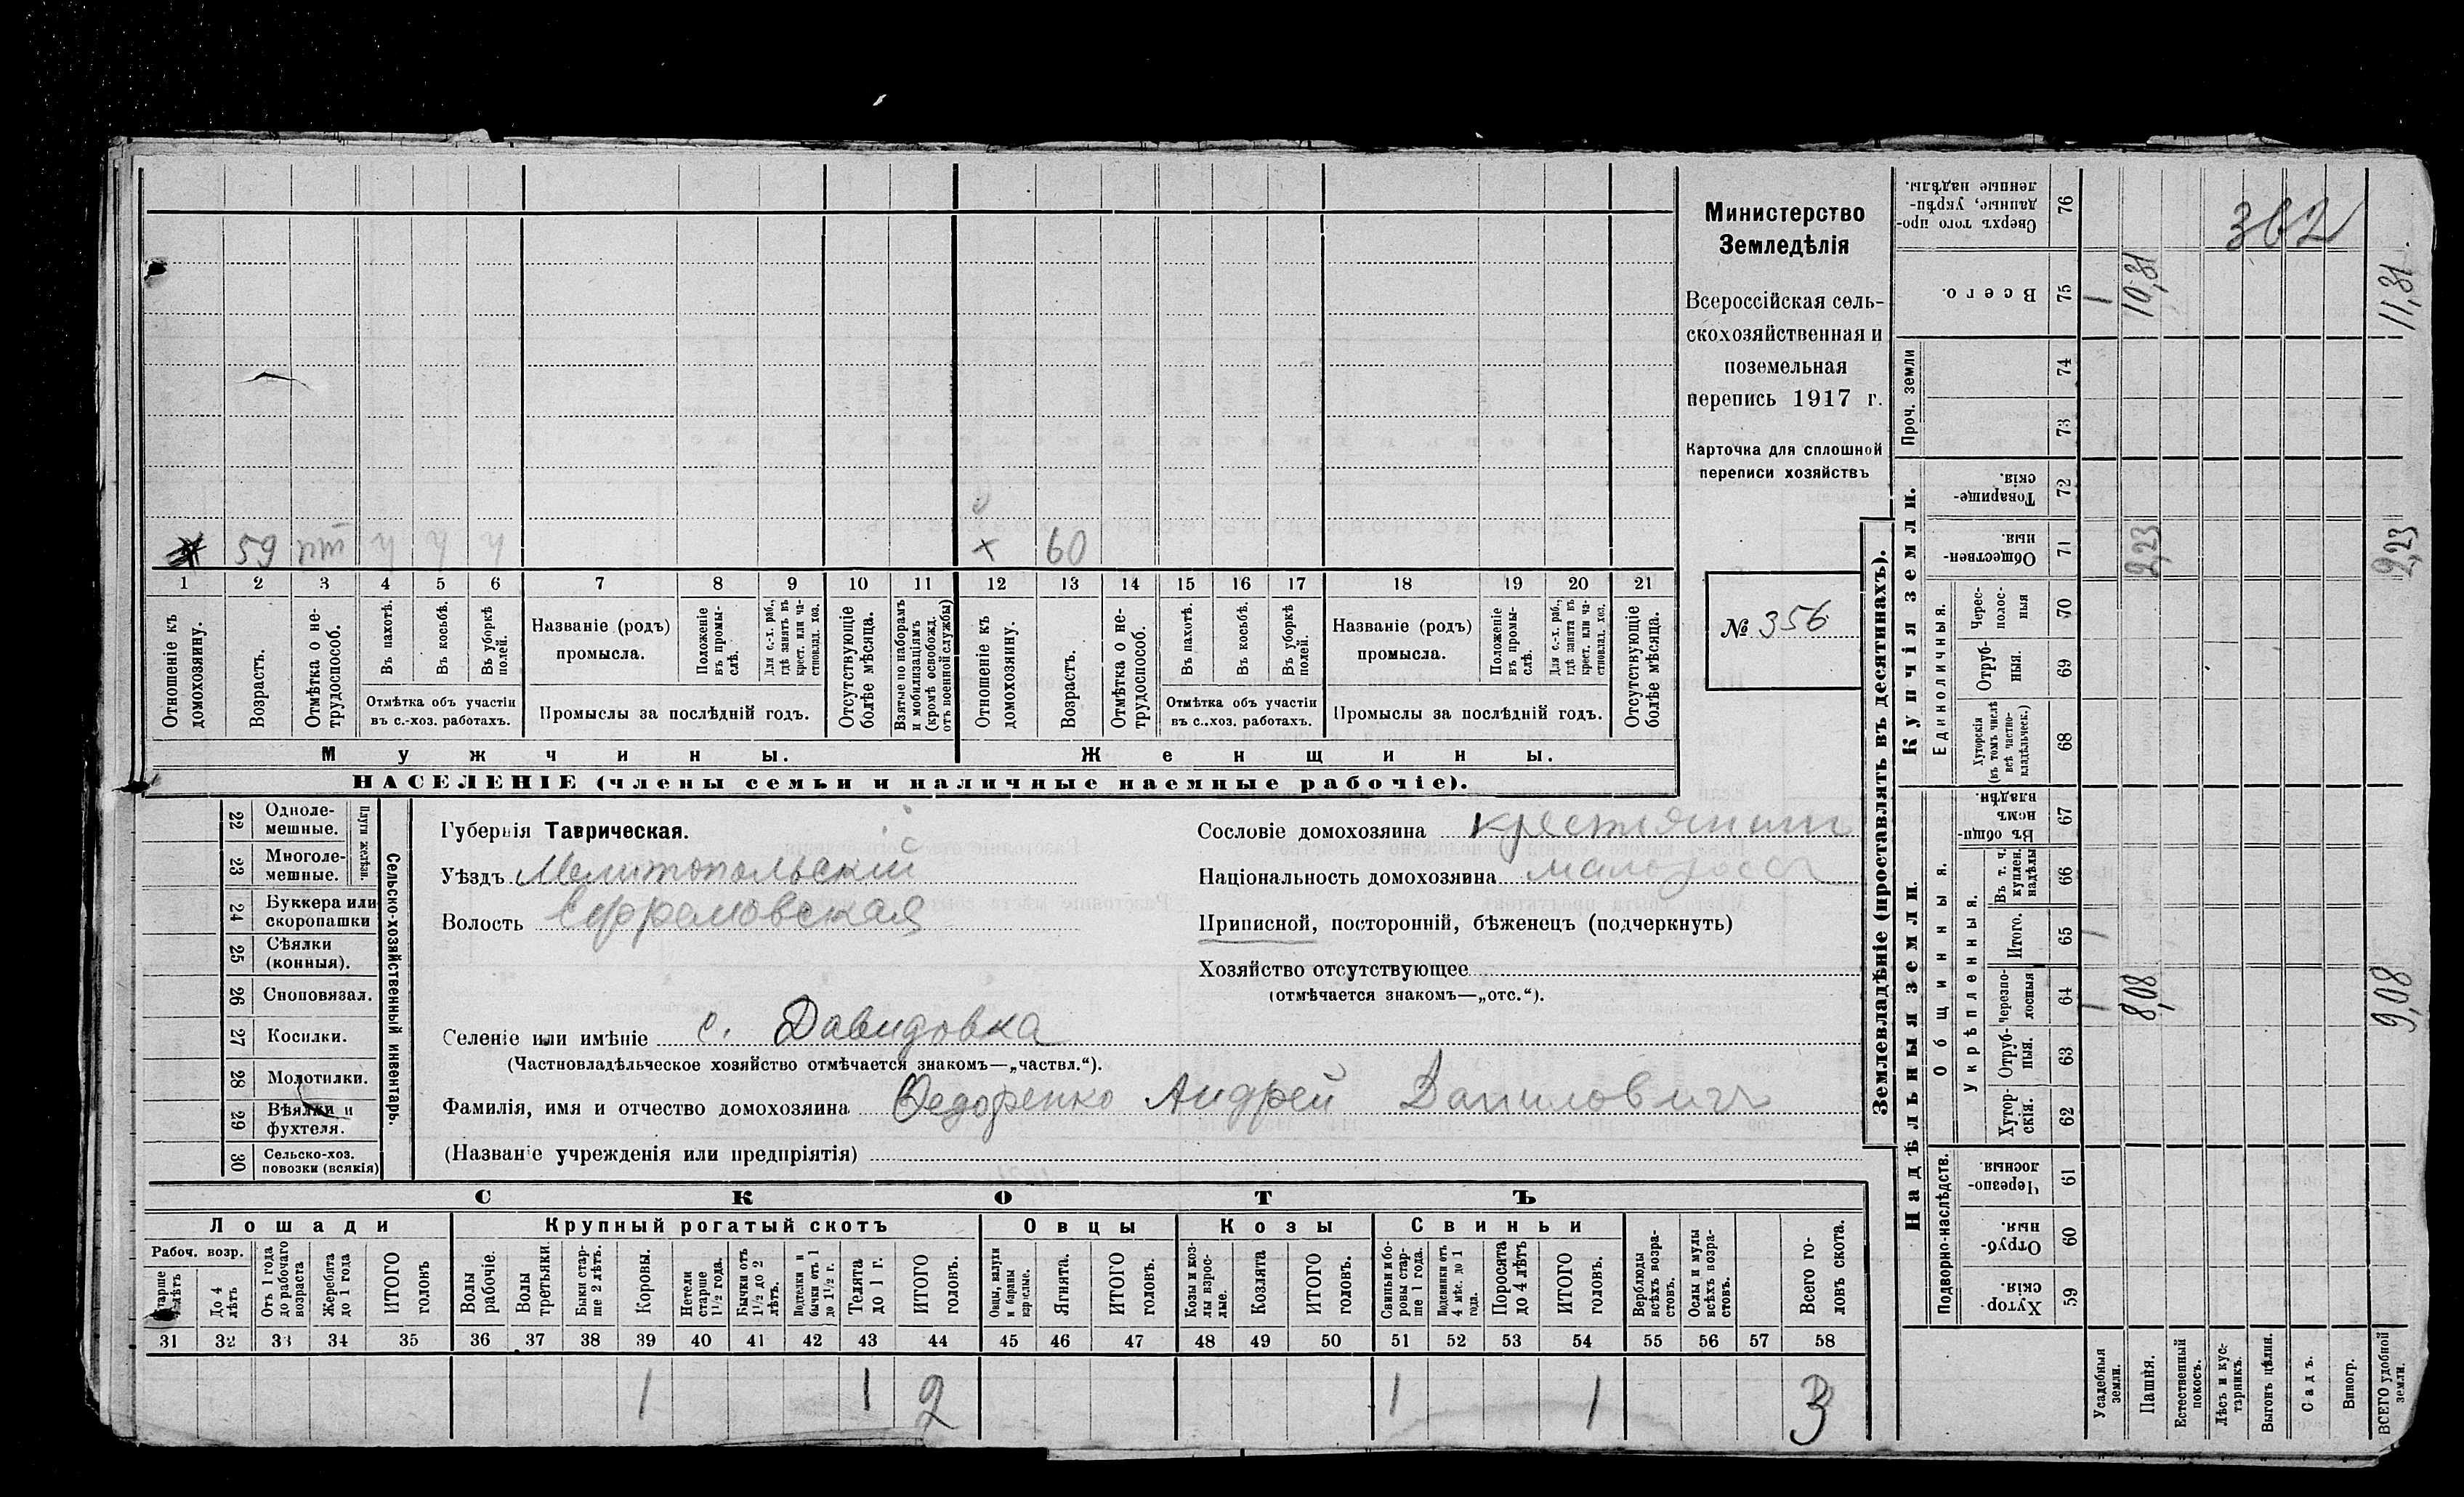 Министерство
Земледѣлія
Всероссійская сель-
скохозяйственная и
поземельная
перепись 1917 г.
Карточка для сплошной
переписи хозяйствъ
№ 356
362
59 ч ч ч
х 60
1 2 3 4 5 6 7 8 9 10 11 12 13 14 15 16 17 18 19 20 21
Отношеніе къ домохозяину.
Возрастъ.
Отмѣтка о не-трудоспособ.
Въ пахотѣ.
Въ косьбѣ.
Въ уборкѣ полей.
Отмѣтка объ участіи
въ с.-хоз. работахъ.
Названіе (родъ)
промысла.
Положеніе въ промы-слѣ.
Для с.-х. раб., гдѣ занятъ въ крест. или ча-стновлад. хоз.
Промыслы за послѣдній годъ.
Отсутствующіе болѣе мѣсяца.
Взятые по наборамъ и мобилизаціямъ (кромѣ освобожд. отъ военной службы)
Отношеніе къ домохозяину.
Возрастъ.
Отмѣтка о не-трудоспособ.
Въ пахотѣ.
Въ косьбѣ.
Въ уборкѣ полей.
Отмѣтка объ участіи
въ с.-хоз. работахъ.
Названіе (родъ)
промысла.
Положеніе въ промы-слѣ.
Для с.-х. раб., гдѣ занята въ крест. или ча-стновлад. хоз.
Промыслы за послѣдній годъ.
Отсутствующіе болѣе мѣсяца.
Мужчины.
Женщины.
НАСЕЛЕНІЕ (члены семьи и наличные наемные рабочіе).
22 Одноле-мешные.
23 Многоле-мешные.
Плуги желѣзн.
24 Буккера или скоропашки
25 Сѣялки (конныя).
26 Сноповязал.
27 Косилки.
28 Молотилки.
29 Вѣялки и фухтеля.
30 Сельско-хоз. повозки (всякія)
Сельско-хозяйственный инвентарь.
Губернія Таврическая.
Уѣздъ Мелитопольскій
Волость Ефремовская
Сословіе домохозяина крестьянин
Національность домохозяина малоросс
Приписной, посторонній, бѣженецъ (подчеркнуть)
Хозяйство отсутствующее
(отмѣчается знакомъ—„отс.“).
Селеніе или имѣніе с. Давидовка
(Частновладѣльческое хозяйство отмѣчается знакомъ—„частвл.“).
Фамилія, имя и отчество домохозяина Федоренко Андрей Данилович
(Названіе учрежденія или предпріятія)
СКОТЪ
Лошади
Крупный рогатый скотъ
Овцы
Козы
Свиньи
Рабоч. возр.
Старше 4 лѣтъ
До 4 лѣтъ
Отъ 1 года до рабочаго возраста
Жеребята до 1 года
ИТОГО головъ
Волы рабочіе.
Волы третьяки.
Быки стар-ше 2 лѣтъ.
Коровы.
Нетели старше 1½ года.
Бычки отъ 1½ до 2 лѣтъ.
Подтелки и бычки отъ 1 до 1½ г.
Телята до 1 г.
ИТОГО головъ.
Овцы, валухи и бараны взрослые.
Ягнята.
ИТОГО головъ.
Козы и коз-лы взрос-лые.
Козлята
ИТОГО головъ.
Свиньи и бо-ровы стар-ше 1 года.
Подсвинки отъ 4 мѣс. до 1 года.
Поросята до 4 лѣтъ
ИТОГО головъ.
Верблюды всѣхъ возра-стовъ.
Ослы и мулы всѣхъ возра-стовъ.
Всего го-ловъ скота.
31 32 33 34 35 36 37 38 39 40 41 42 43 44 45 46 47 48 49 50 51 52 53 54 55 56 57 58
1 1 2 1 1 3
Землевладѣніе (проставлять въ десятинахъ).
Надѣльныя земли.
Купчія земли.
Проч. земли
Подворно-наслѣдств.
Общинныя.
Укрѣпленныя.
Единоличныя.
Сверхъ того про-данные, укрѣп-ленные надѣлы. 76
Всего. 75 1 10,31 11,31
74
73
Товарище-скія. 72
Обществен-ныя. 71 2,23 2,23
Черес-полос-ныя 70
Отруб-ныя. 69
Хуторскія (въ томъ числѣ всѣ частно-владѣльческ.) 68
Въ общин-номъ владѣн. 67
Въ т. ч. куплен. надѣлы 66
Итого. 65 1
Черезпо-лосныя 64 1 8,08 9,08
Отруб-ныя. 63
Хутор-скія. 62
Черезпо-лосныя. 61
Отруб-ныя. 60
Хутор-скія. 59
Усадебныя земли.
Пашня.
Естественный покосъ.
Лѣсъ и кус-тарникъ.
Выгонъ цѣлин.
Садъ.
Виногр.
ВСЕГО удобной земли.